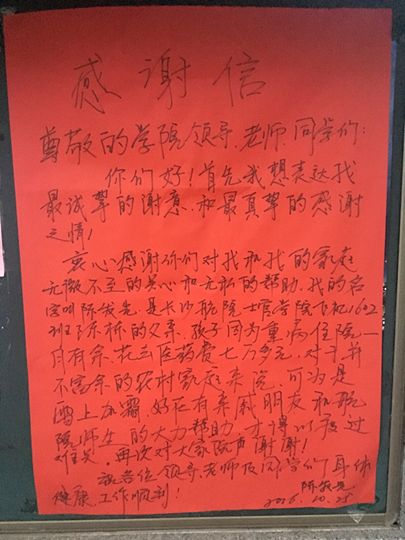 感谢信
尊敬的学院领导、老师、同学们:
你们好!首先我想表达我
最诚挚的谢意,和最真挚的感谢
之情!
衷心感谢你们对我和我的家庭
无微不至的关心和无私的帮助。我的名
字叫陈 先,是长沙航院士官学院飞机1602
班陈桥的父亲,孩子因为重病住院一
月有余,花去医药费七万多元,对于并
不富余的农村家庭来说,可为是
雪上加霜,好在有亲戚朋友和航
院师生的大力帮助,才得以度过
难关,再次对大家说声谢谢!
祝各位领导、老师及同学们身体
健康,工作顺利!
陈
2016.10.25